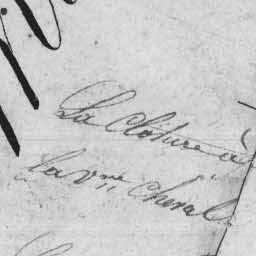 La Clôture à
La Vve Cheval